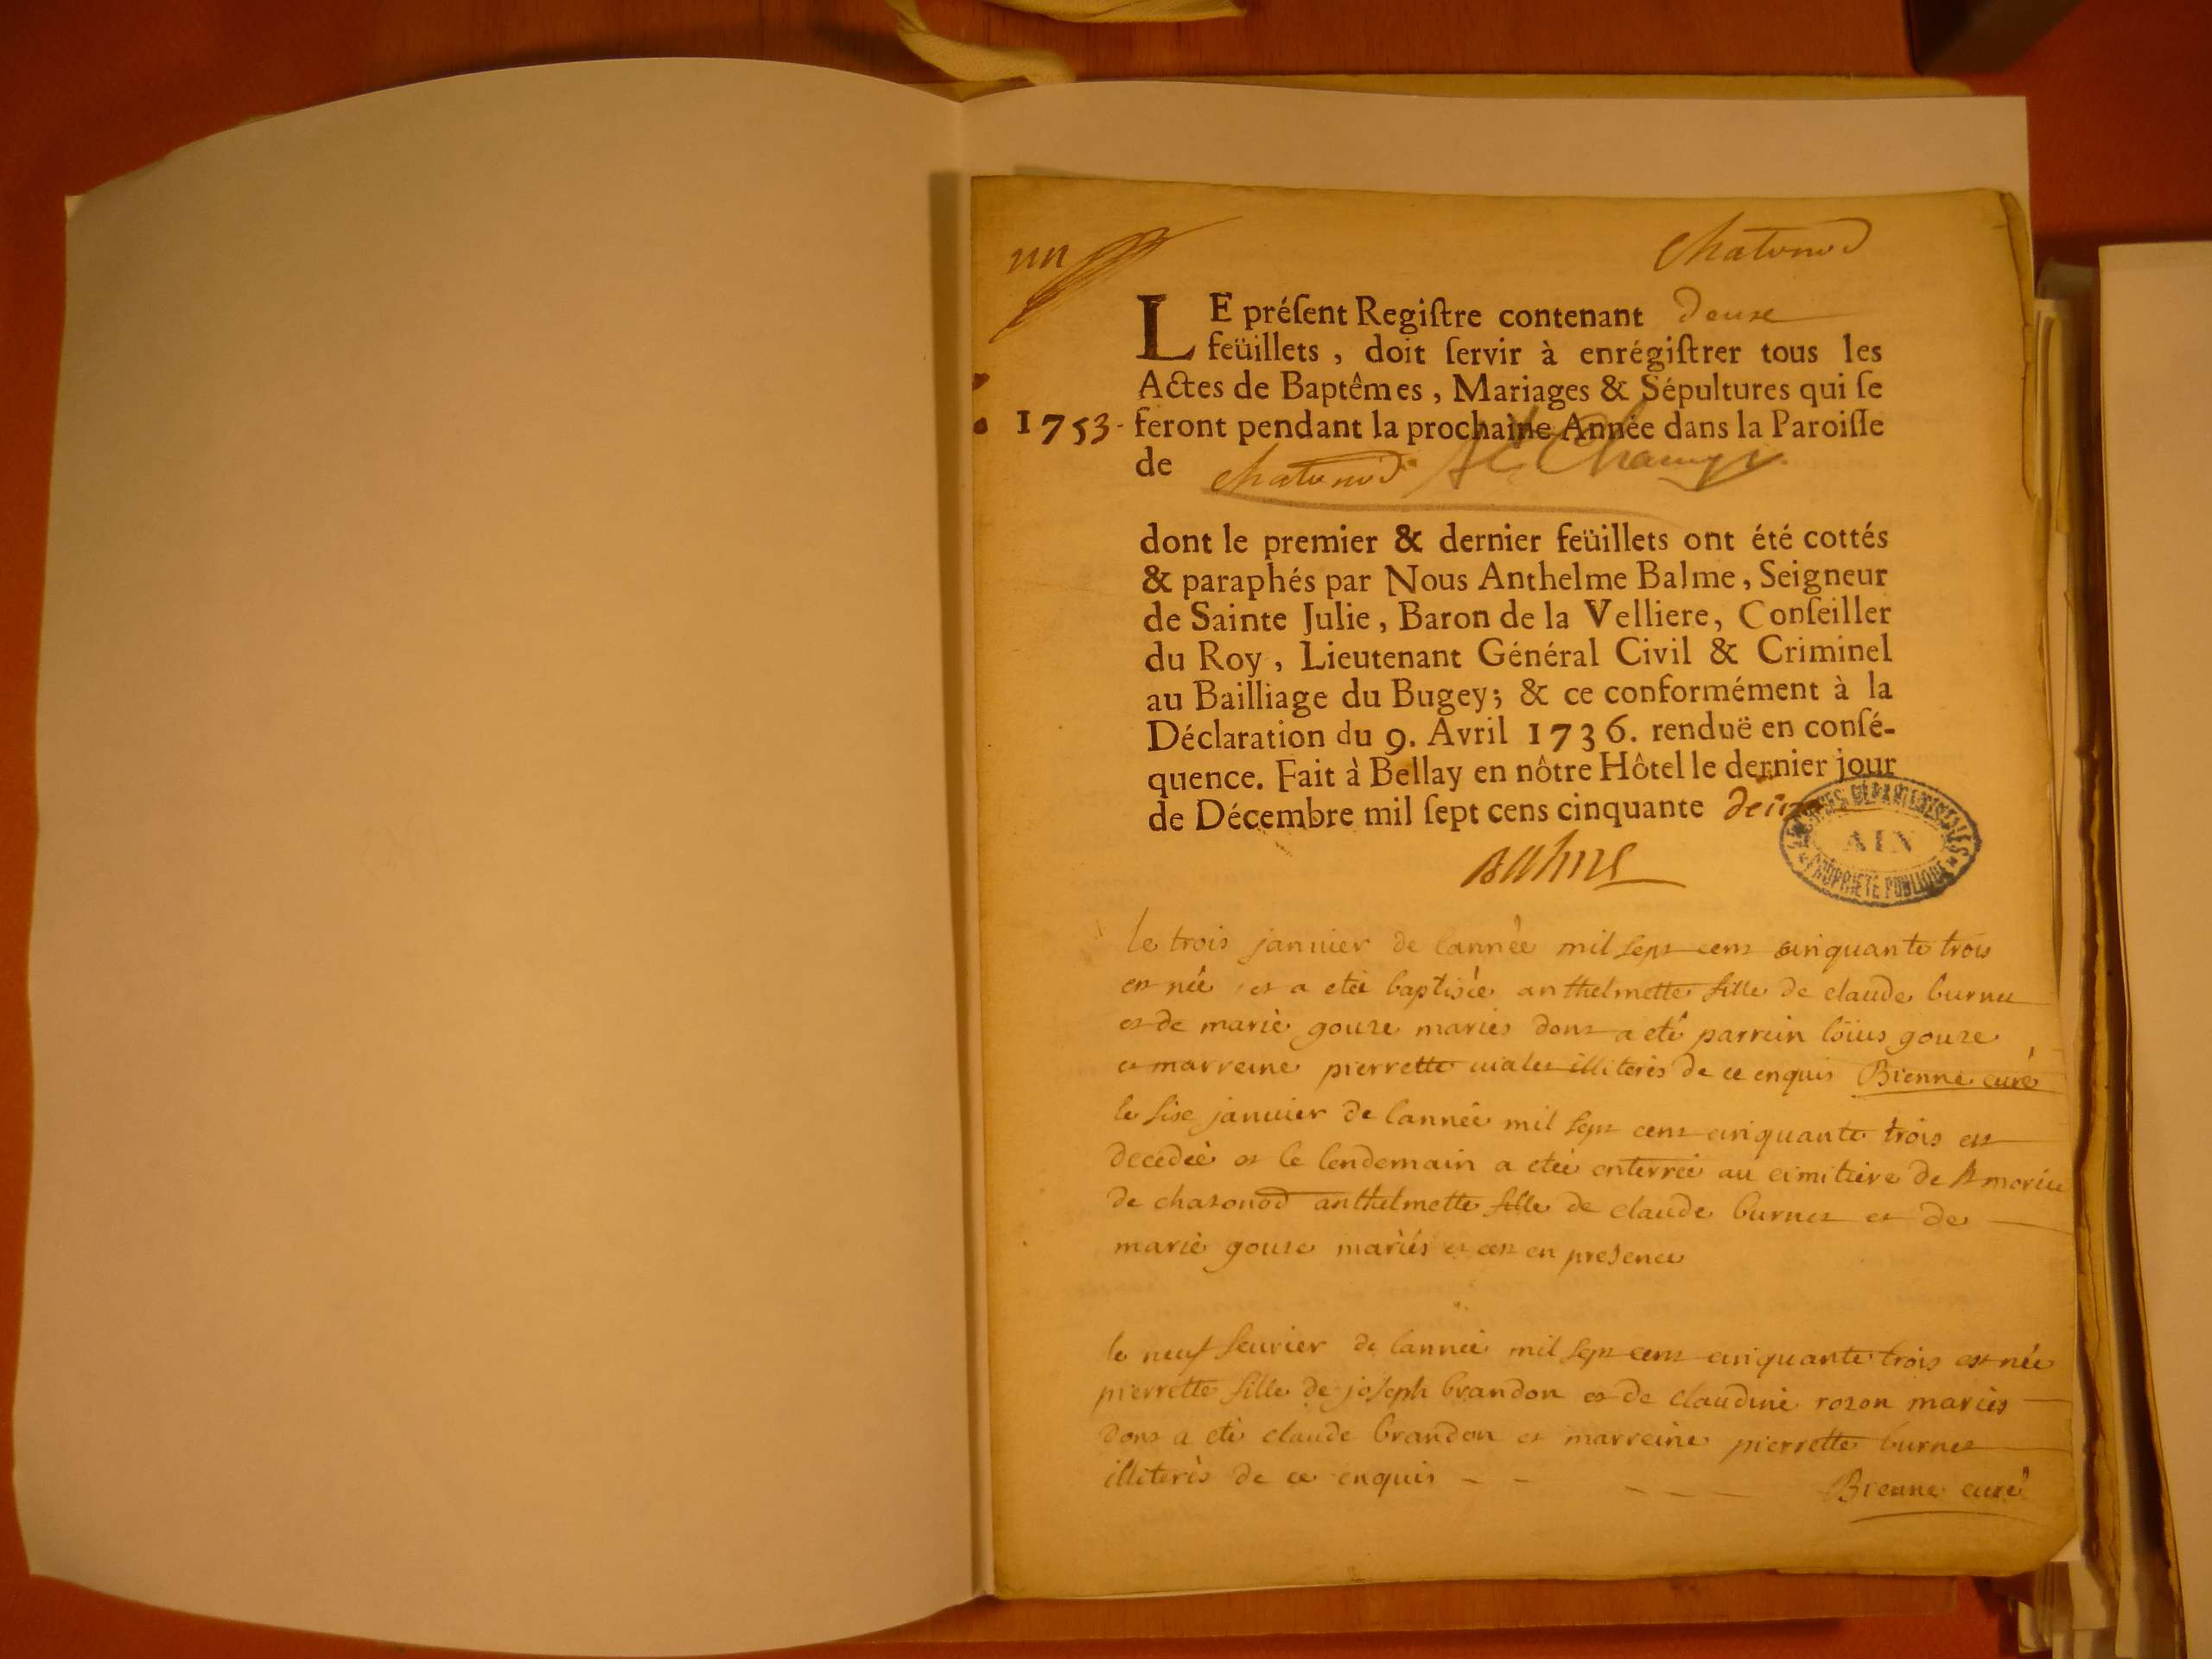 un
Chatonod
LE préſent Regiſtre contenant douse
feüillets, doit ſervir à enrégiſtrer tous les
Actes de Baptêmes, Mariages & Sépultures qui ſe
1753. feront pendant la prochaine Année dans la Paroiſſe
de Chatonod St Champ.
dont le premier & dernier feüillets ont été cottés
& paraphés par Nous Anthelme Balme, Seigneur
de Sainte Julie, Baron de la Velliere, Conſeiller
du Roy, Lieutenant Général Civil & Criminel
au Bailliage du Bugey; & ce conformément à la
Déclaration du 9. Avril 1736. renduë en conſé-
quence. Fait à Bellay en nôtre Hôtel le dernier jour
de Décembre mil ſept cens cinquante deux
ARCHIVES DÉPARTEMENTALES
AIN
PROPRIÉTÉ PUBLIQUE
Balme
le trois januier de lannée mil sept cent cinquante trois
est née et a eteé baptisée anthelmette fille de claude burnet
et de marie gouze mariés dont a eté parrein loüis gouze
et marreine pierrette illiterés de ce enquis Bienne curé
le sise januier de lannée mil sept cent cinquante trois est
decedeé et le lendemain a eteé enterreé au cimitiere de
de chazonod anthelmette fille de claude burnet et de
marie gouze mariés et cest en presence
le neuf feurier de lanneé mil sept cent cinquante trois est née
pierrette fille de joseph brandon et de claudine rozon mariés
dont a eté claude brandon et marreine pierrette burnet
illiterés de ce enquis - - - - -
Bienne curé